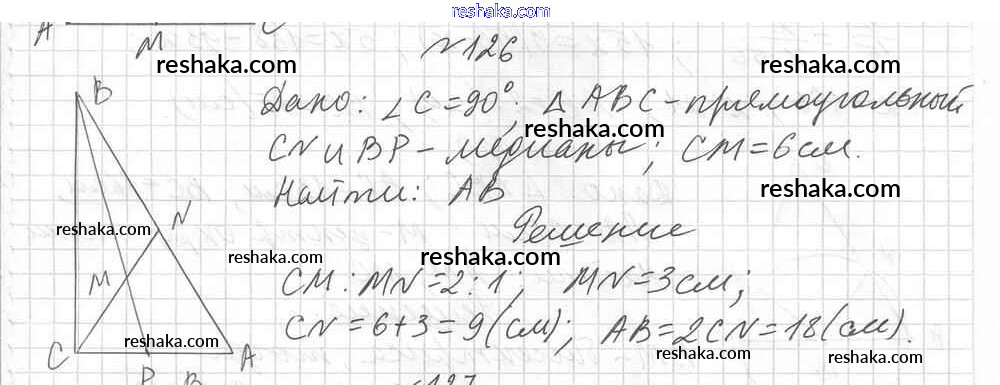 reshaka.com
A M C
№126
B
Дано: ∠C=90°; △ABC-прямоугольный
CN и BP - медианы; CM=6см.
Найти: AB
Решение
N
M
CM:MN=2:1; MN=3см;
CN=6+3=9(см); AB=2CN=18(см).
C A
P B
№127
reshaka.com
reshaka.com
reshaka.com
reshaka.com
reshaka.com
reshaka.com
reshaka.com
reshaka.com
reshaka.com
reshaka.com
reshaka.com